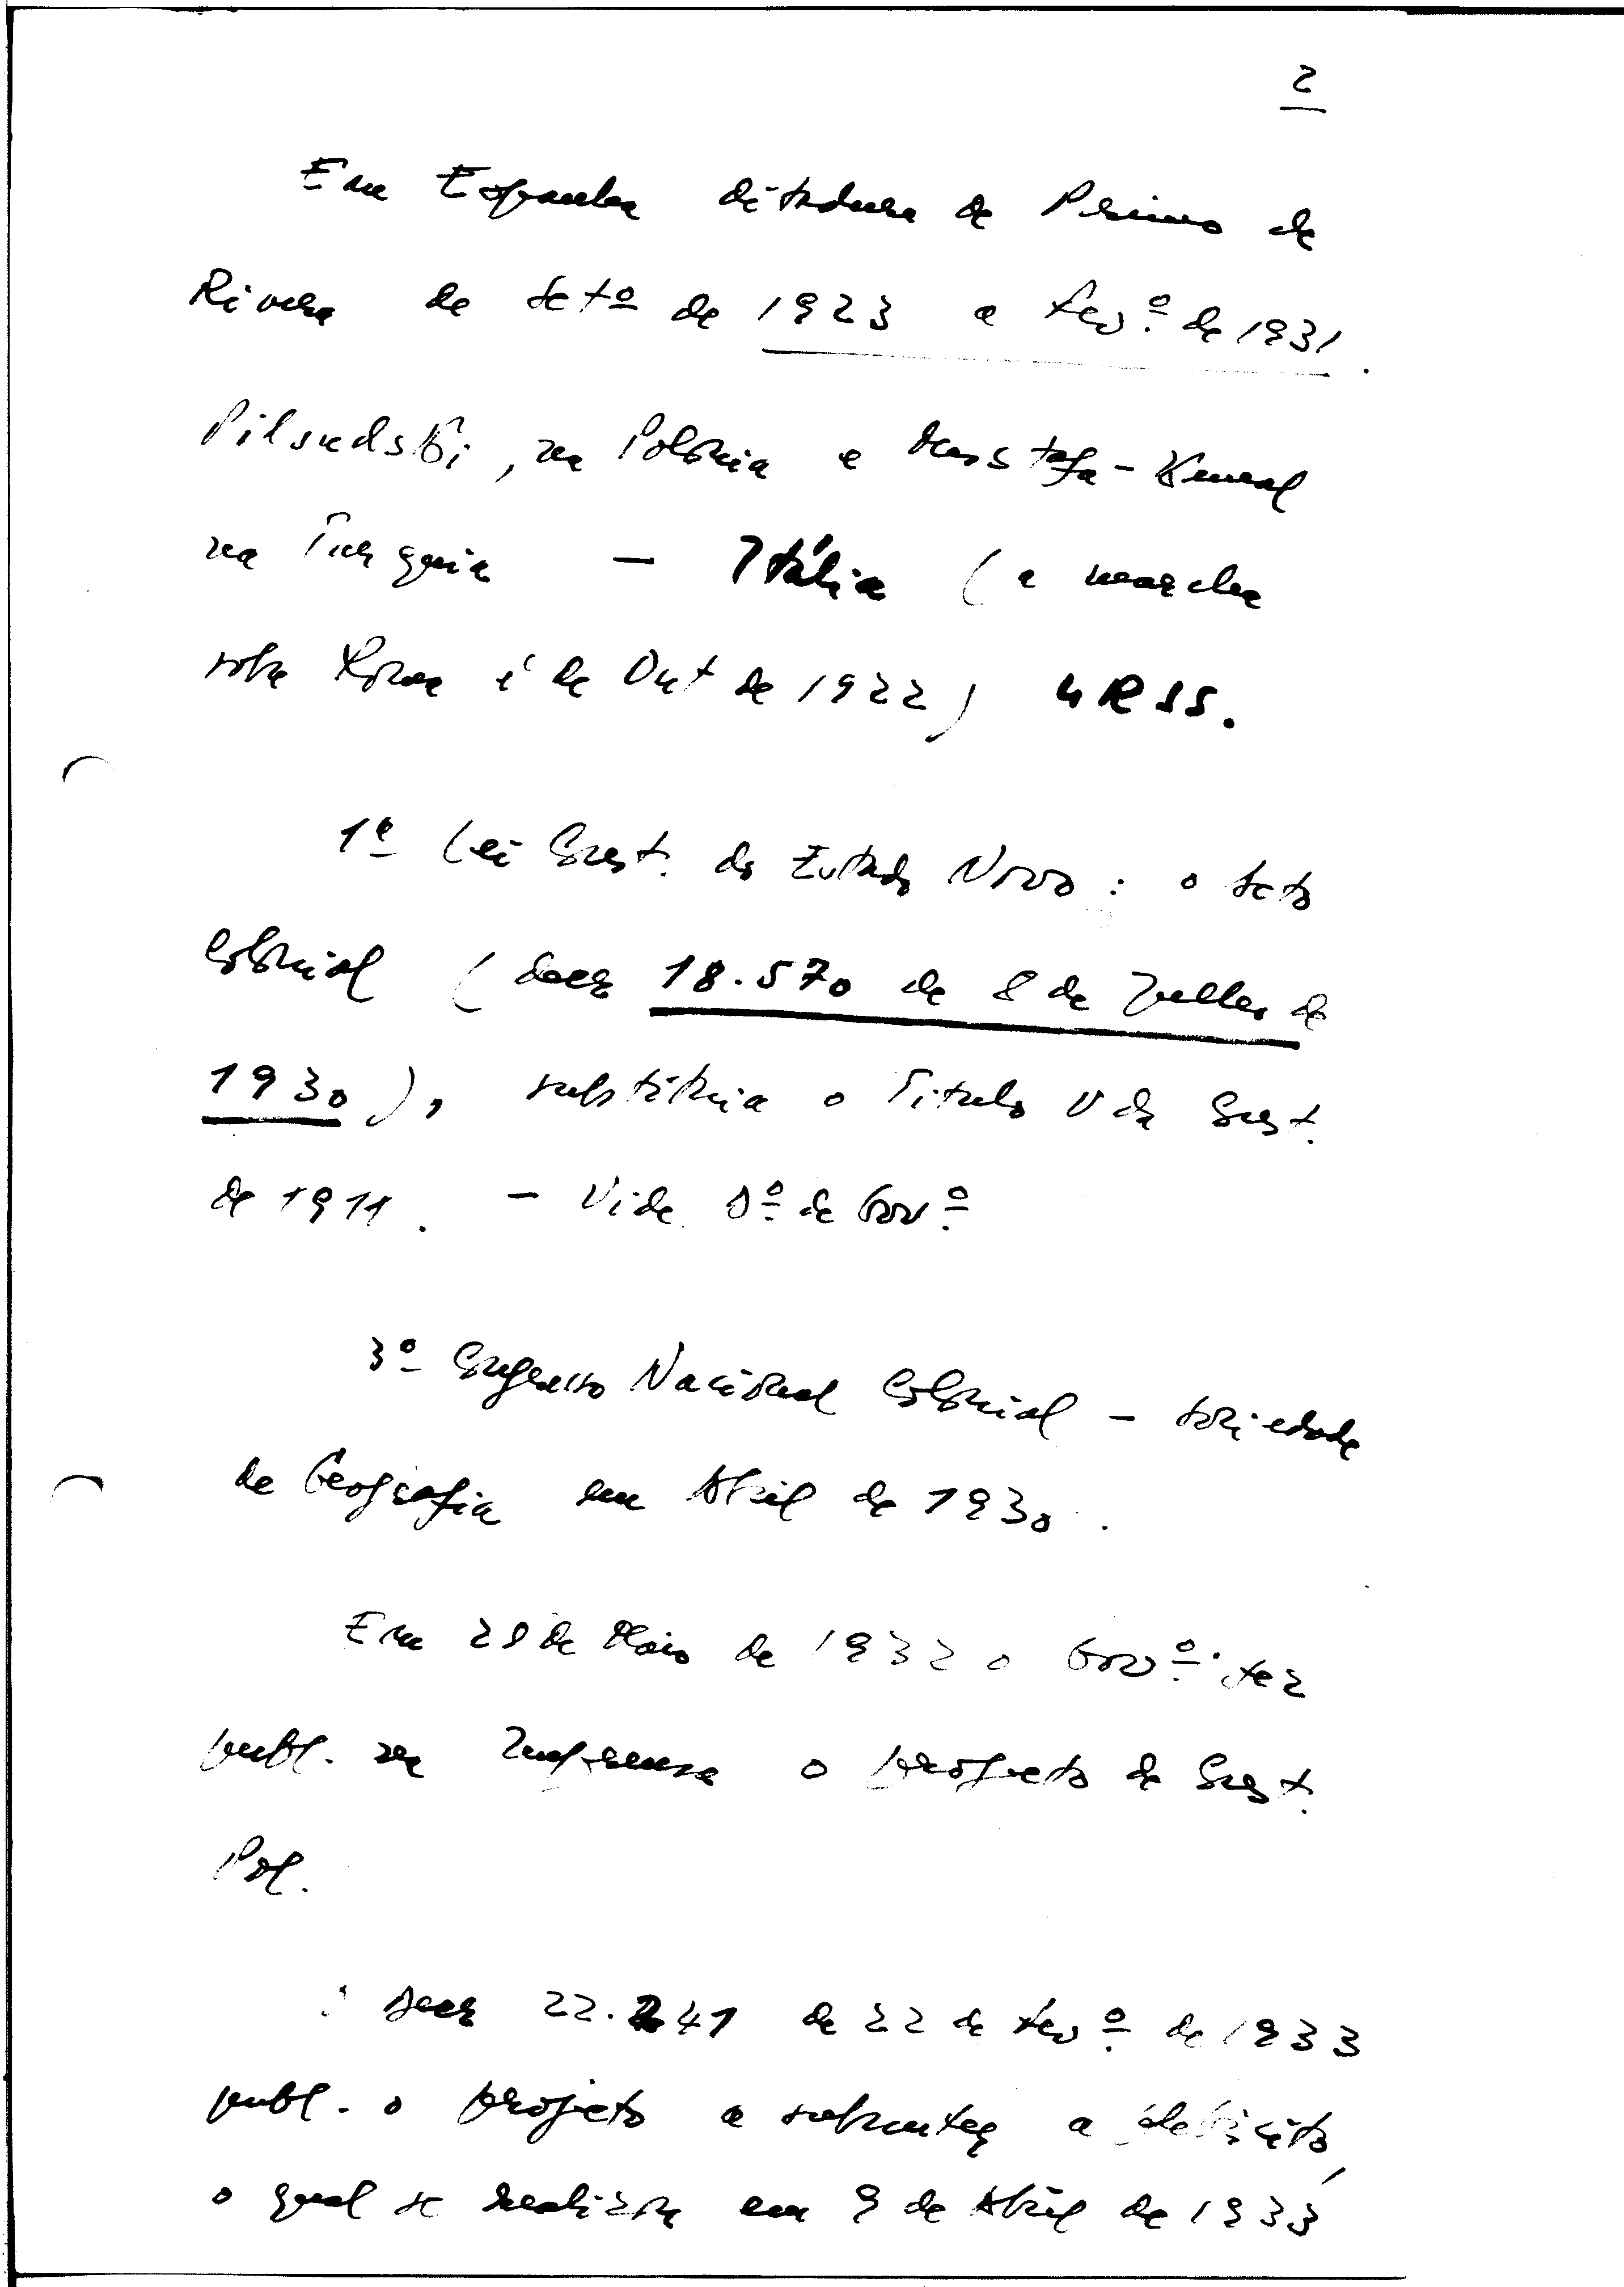 2
Em Espanha ditadura de Primo de
Rivera de Setº de 1923 a Fevº de 1931.
Pilsudski, na Polónia e Mustafa-Kemal
na Turquia – Itália (a marcha
sobre Roma é de Out de 1922) URSS.
1ª Lei Const. do Estado Novo: o Acto
Colonial (decr 18.570 de 8 de Julho de
1930), substituia o Titulo V da Const.
de 1911. – Vide Dº de Govº
3º Congresso Nacional Colonial – Sociedade
de Geografia em Abril de 1930.
Em 28 de Maio de 1932 o Govº fez
publ. na Imprensa o projecto de Const.
Pol.
Decr 22.241 de 22 de Fevº de 1933
publ. o projeto a submeter a plebiscito,
o qual se realizou em 9 de Abril de 1933